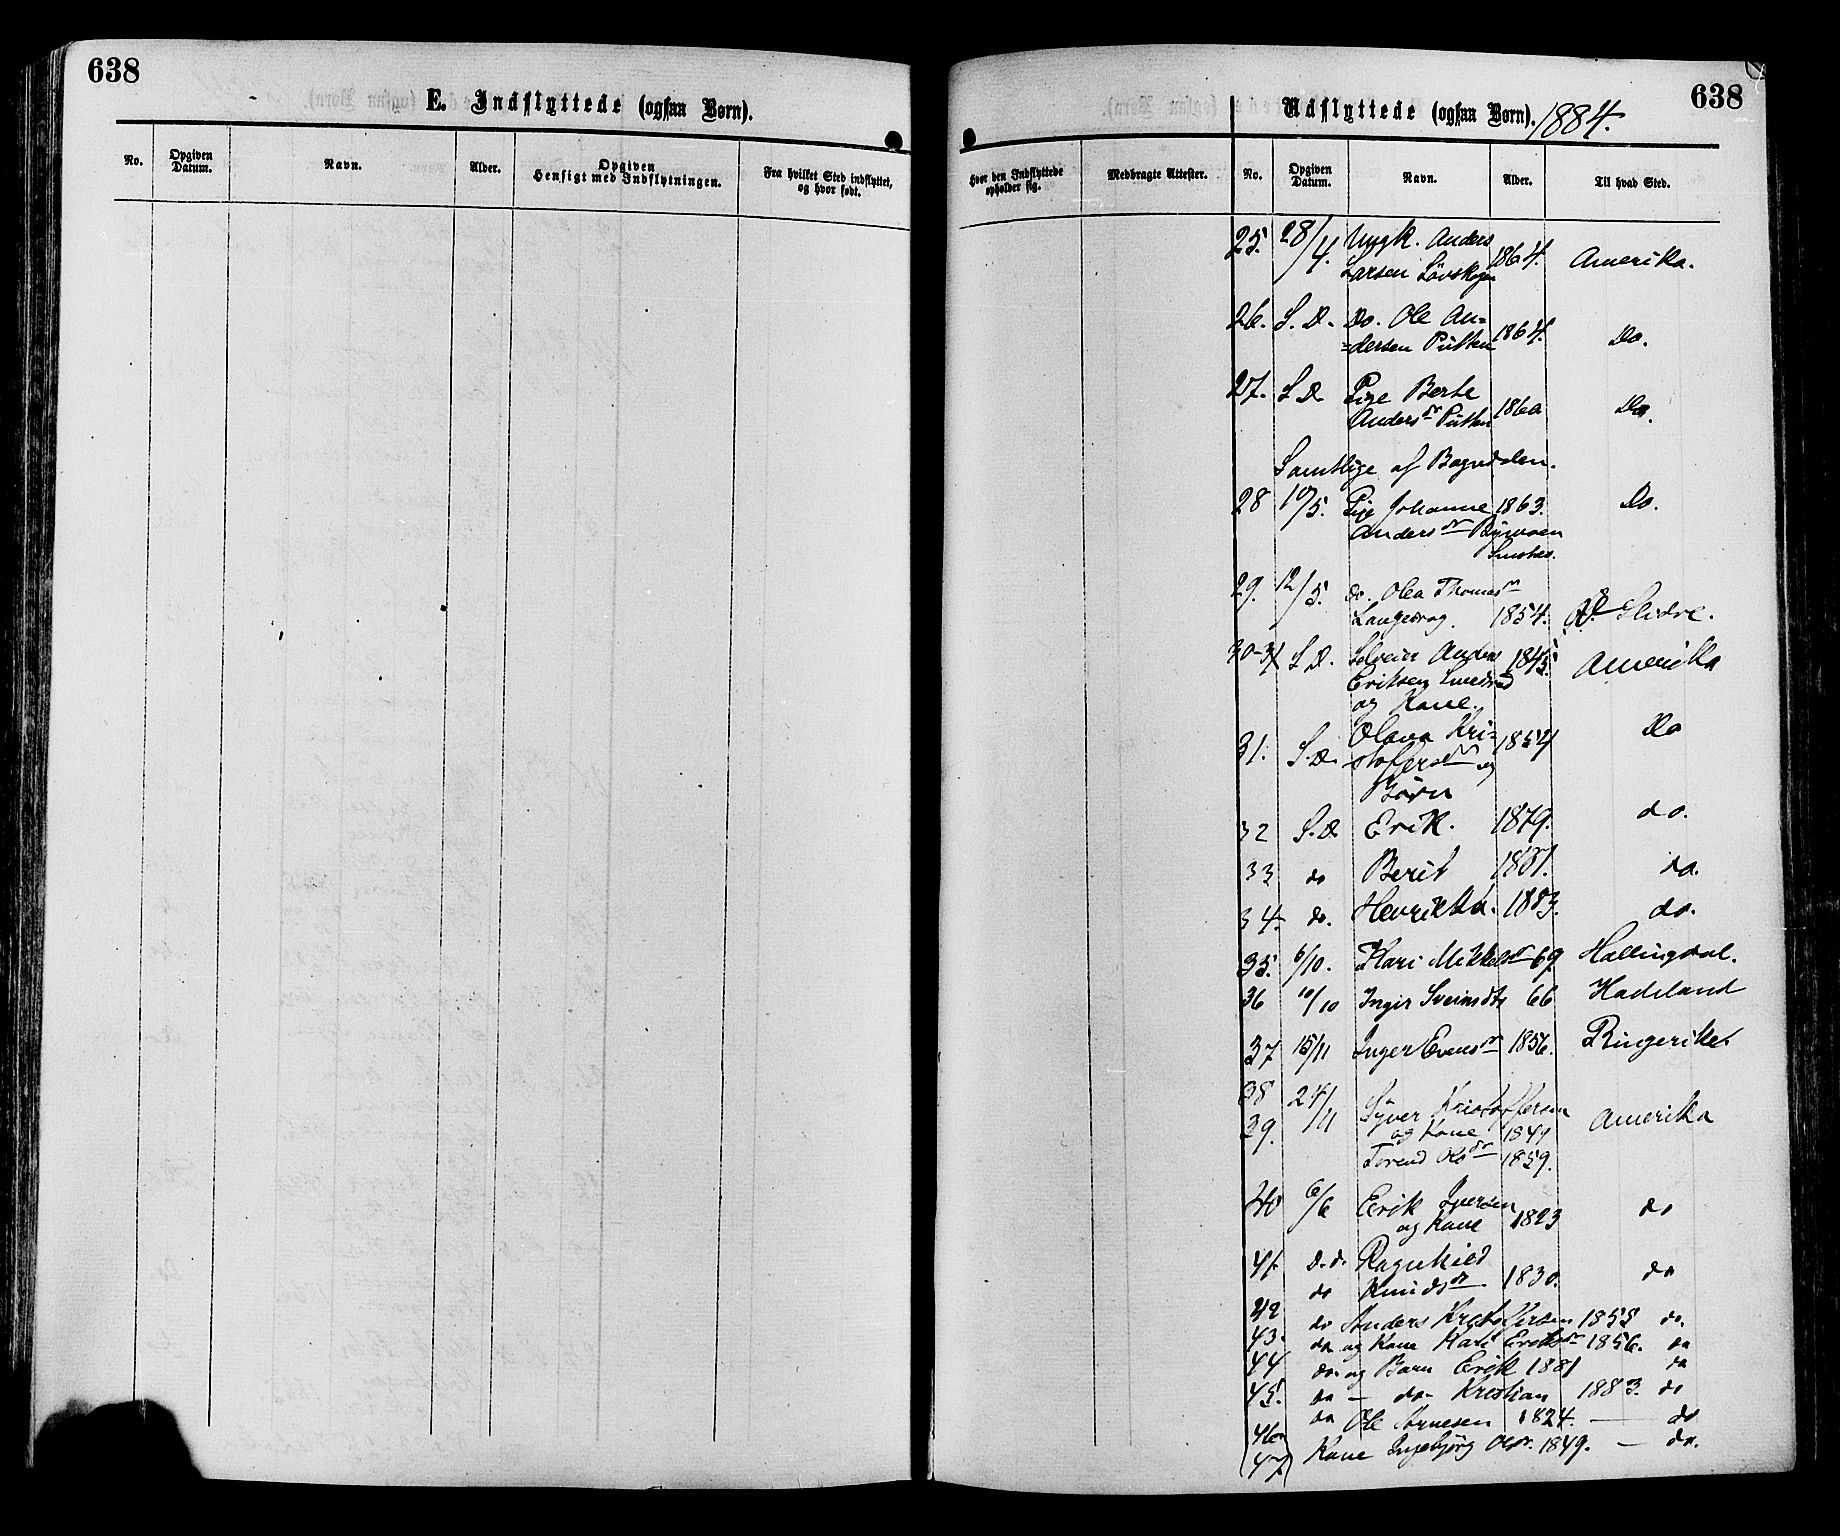 638
E. Indflyttede (ogsaa Børn).
No.
Opgiven Datum.
Navn.
Alder.
Opgiven Hensigt med Indflytningen.
Fra hvilket Sted indflyttet, og hvor født.
638
Udflyttede (ogsaa Børn). 1884.
Hvor den Indflyttede opholder sig.
Medbragte Attester.
No.
Opgiven Datum.
Navn.
Alder.
Til hvad Sted.
25. 28/4. Ungk. Anders
Larsen Lövskogen 1864. Amerika.
26. S. D. Do. Ole An=
=dersen Putten 1864. Do.
27. S D. Pige Berte
Anders dr Putten 1860 Do.
Samtlige af Bagndalen.
28 10/5. Pige Johanne 1863. Do.
Anders dr
29. 12/5. do. Olea Thomas dr
Langedrag. 1854. Slidre.
30-31 S D. Selveier Anders 1845. Amerika
Eriksen
og Kone.
31. S.D. Olava Kri- 1854 Do
stofers dr og
Börn
32 S.D. Erik. 1879. do.
33 do Berit 1881. do.
34. do. Henrikka. 1883. do.
35. 6/10. Kari Mikkels dr 69. Hallingdal.
36 10/10 Ingir Sveinsdtr 66 Hadeland
37 15/11 Inger Evens dr 1856. Ringeriket
38 24/11 Syver Kristoffersen Amerika
39. og Kone 1849
Torend Ols dr 1859.
40 6/6 Erik Iversen
og Kone 1823 do
41. D.d. Ragnhild
do Knuds dr 1830. do
42 do Anders Kristoffersen 1855 do.
43. do og Kone Kari Eriks dr 1856. do
44 do. og Barn Erik 1881 do
45. do — do- Kristian 1883. do
46 do Ole Arnesen 1824. — do
47 Kone Ingebjörg Olsdr. 1849. — do.